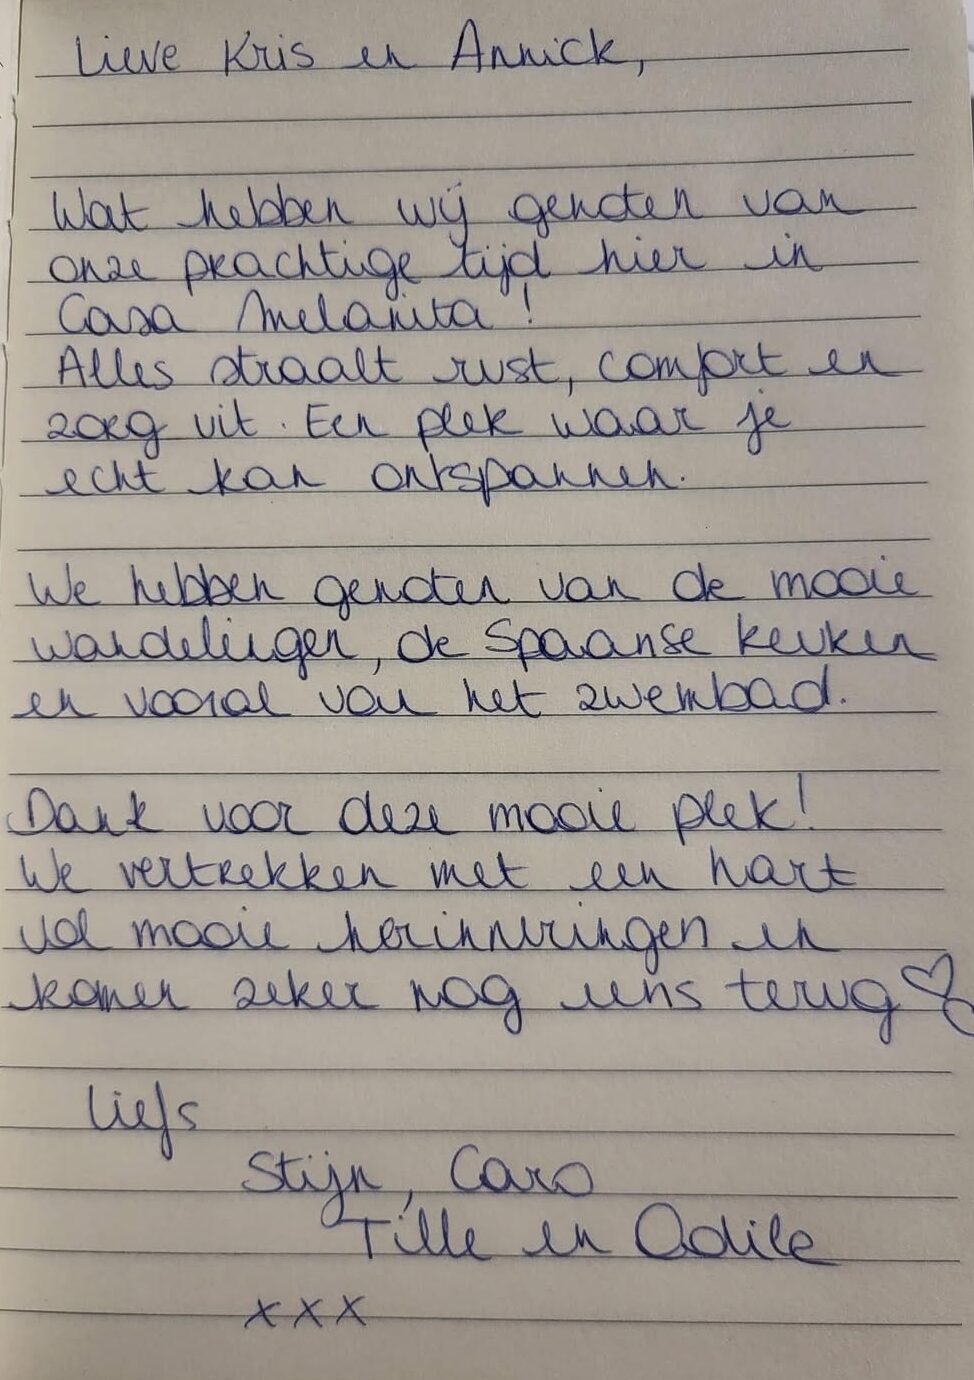 Lieve Kris en Annick,
Wat hebben wij genoten van
onze prachtige tijd hier in
Casa Melanita!
Alles straalt rust, comfort en
zorg uit. Een plek waar je
echt kan ontspannen.
We hebben genoten van de mooie
wandelingen, de Spaanse keuken
en vooral van het zwembad.
Dank voor deze mooie plek!
We vertrekken met een hart
vol mooie herinneringen en
komen zeker nog eens terug
Liefs
Stijn, Caro
Tille en Odile
xxx